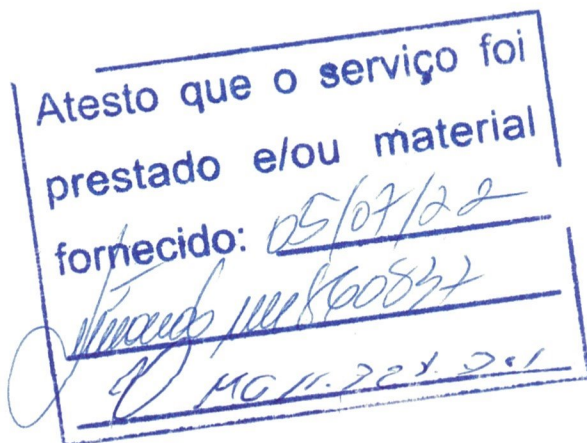 Atesto que o serviço foi
prestado e/ou material
fornecido: 05/07/22
860837
MG 11.